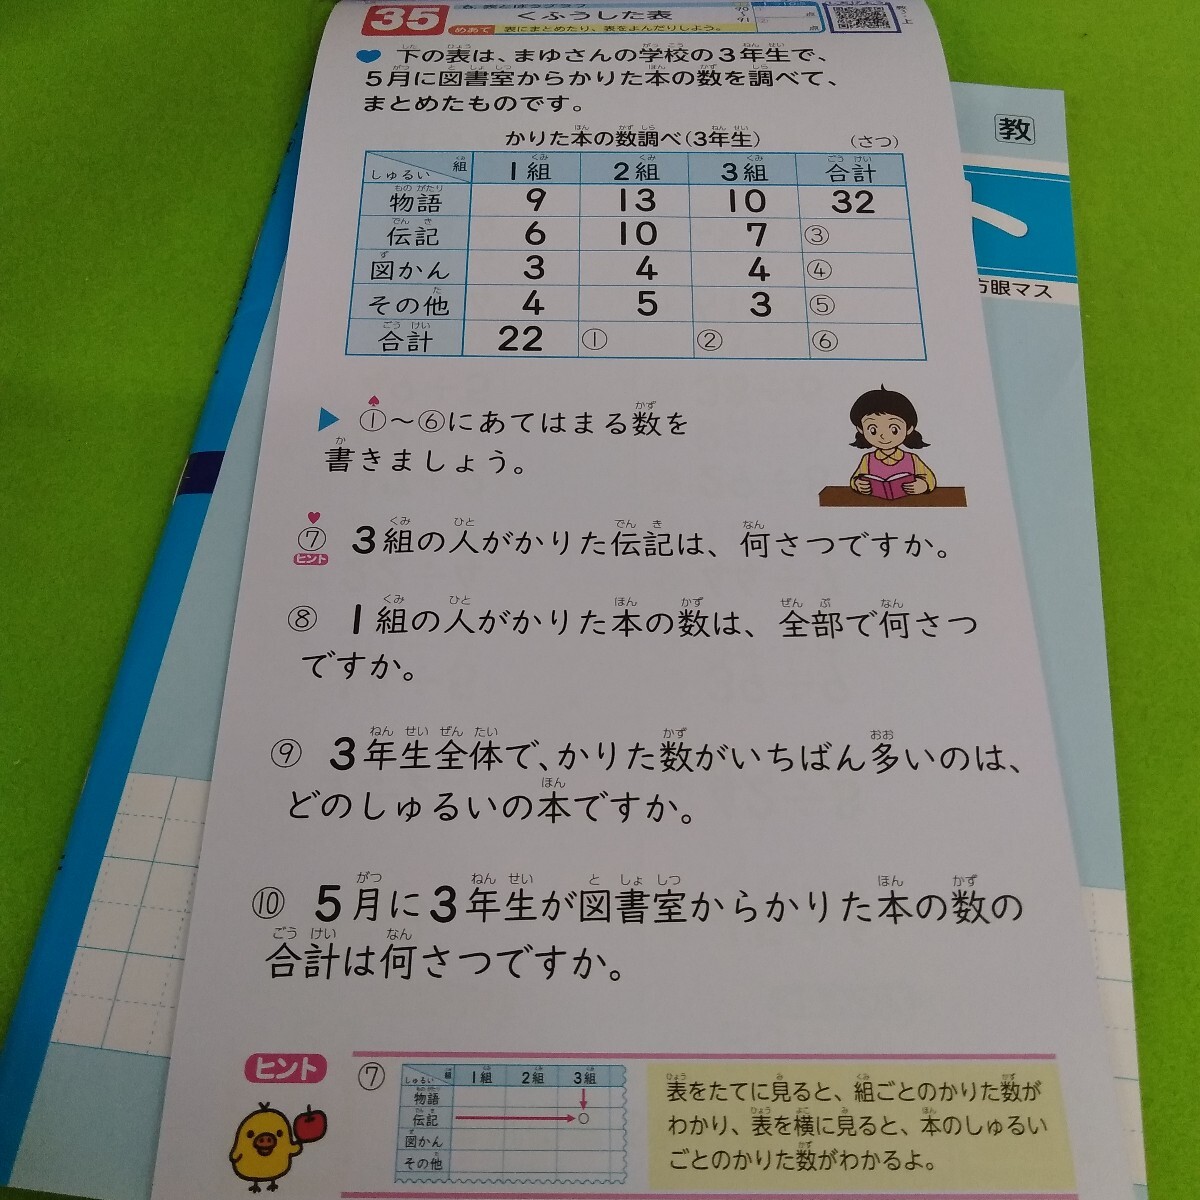 35
6. 表とぼうグラフ
くふうした表
めあて 表にまとめたり、表をよんだりしよう。
下の表は、まゆさんの学校の3年生で、
5月に図書室からかりた本の数を調べて、
まとめたものです。
かりた本の数調べ(3年生) (さつ)
しゅるい 組 1組 2組 3組 合計
物語 9 13 10 32
伝記 6 10 7 ③
図かん 3 4 4 ④
その他 4 5 3 ⑤
合計 22 ① ② ⑥
①～⑥にあてはまる数を
書きましょう。
⑦ 3組の人がかりた伝記は、何さつですか。
ヒント
⑧ 1組の人がかりた本の数は、全部で何さつ
ですか。
⑨ 3年生全体で、かりた数がいちばん多いのは、
どのしゅるいの本ですか。
⑩ 5月に3年生が図書室からかりた本の数の
合計は何さつですか。
ヒント
⑦
しゅるい 組 1組 2組 3組
物語
伝記
図かん
その他
表をたてに見ると、組ごとのかりた数が
わかり、表を横に見ると、本のしゅるい
ごとのかりた数がわかるよ。
教
ト
方眼マス